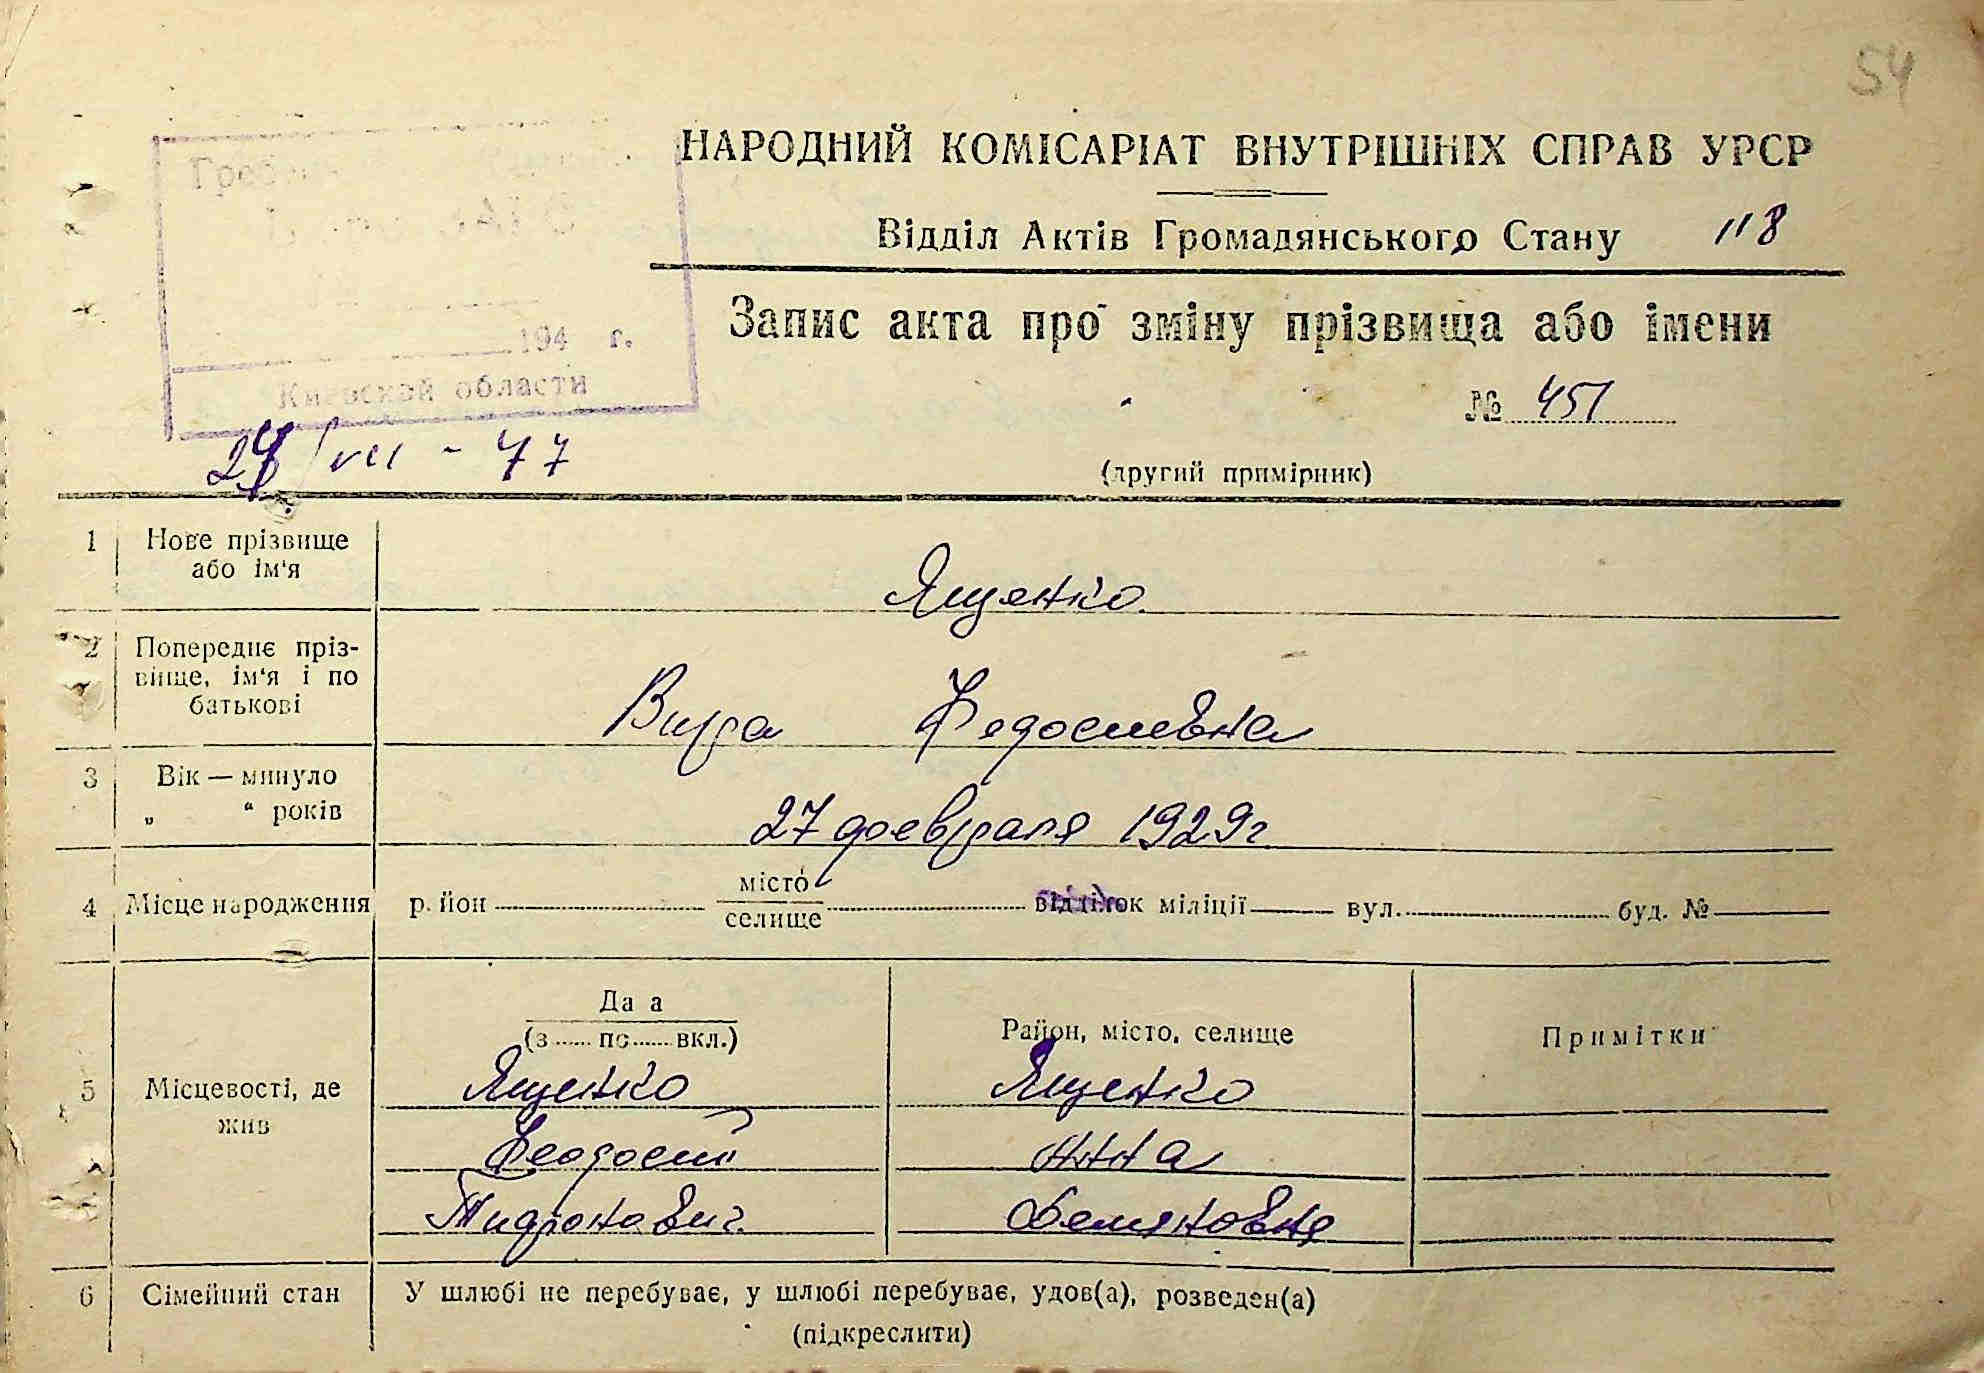 54
НАРОДНИЙ КОМІСАРІАТ ВНУТРІШНІХ СПРАВ УРСР
Відділ Актів Громадянського Стану 118
Запис акта про зміну прізвища або імени
194 г.
Киевской области
№ 451
24/VII - 47
(другий примірник)
1 Нове прізвище або ім'я
Ященко
2 Попереднє пріз-
вище, ім'я і по
батькові
Вира Федосиевна
3 Вік — минуло
„ “ років
27 февраля 1929г
4 Місце народження р йон місто селище відділок міліції вул. буд. №
5 Місцевості, де
жив
Да а
(з ...... по ...... вкл.)
Район, місто, селище
Примітки
Ященко Ященко
Феодосий Анна
Демяновна
6 Сімейний стан У шлюбі не перебуває, у шлюбі перебуває, удов(а), розведен(а)
(підкреслити)